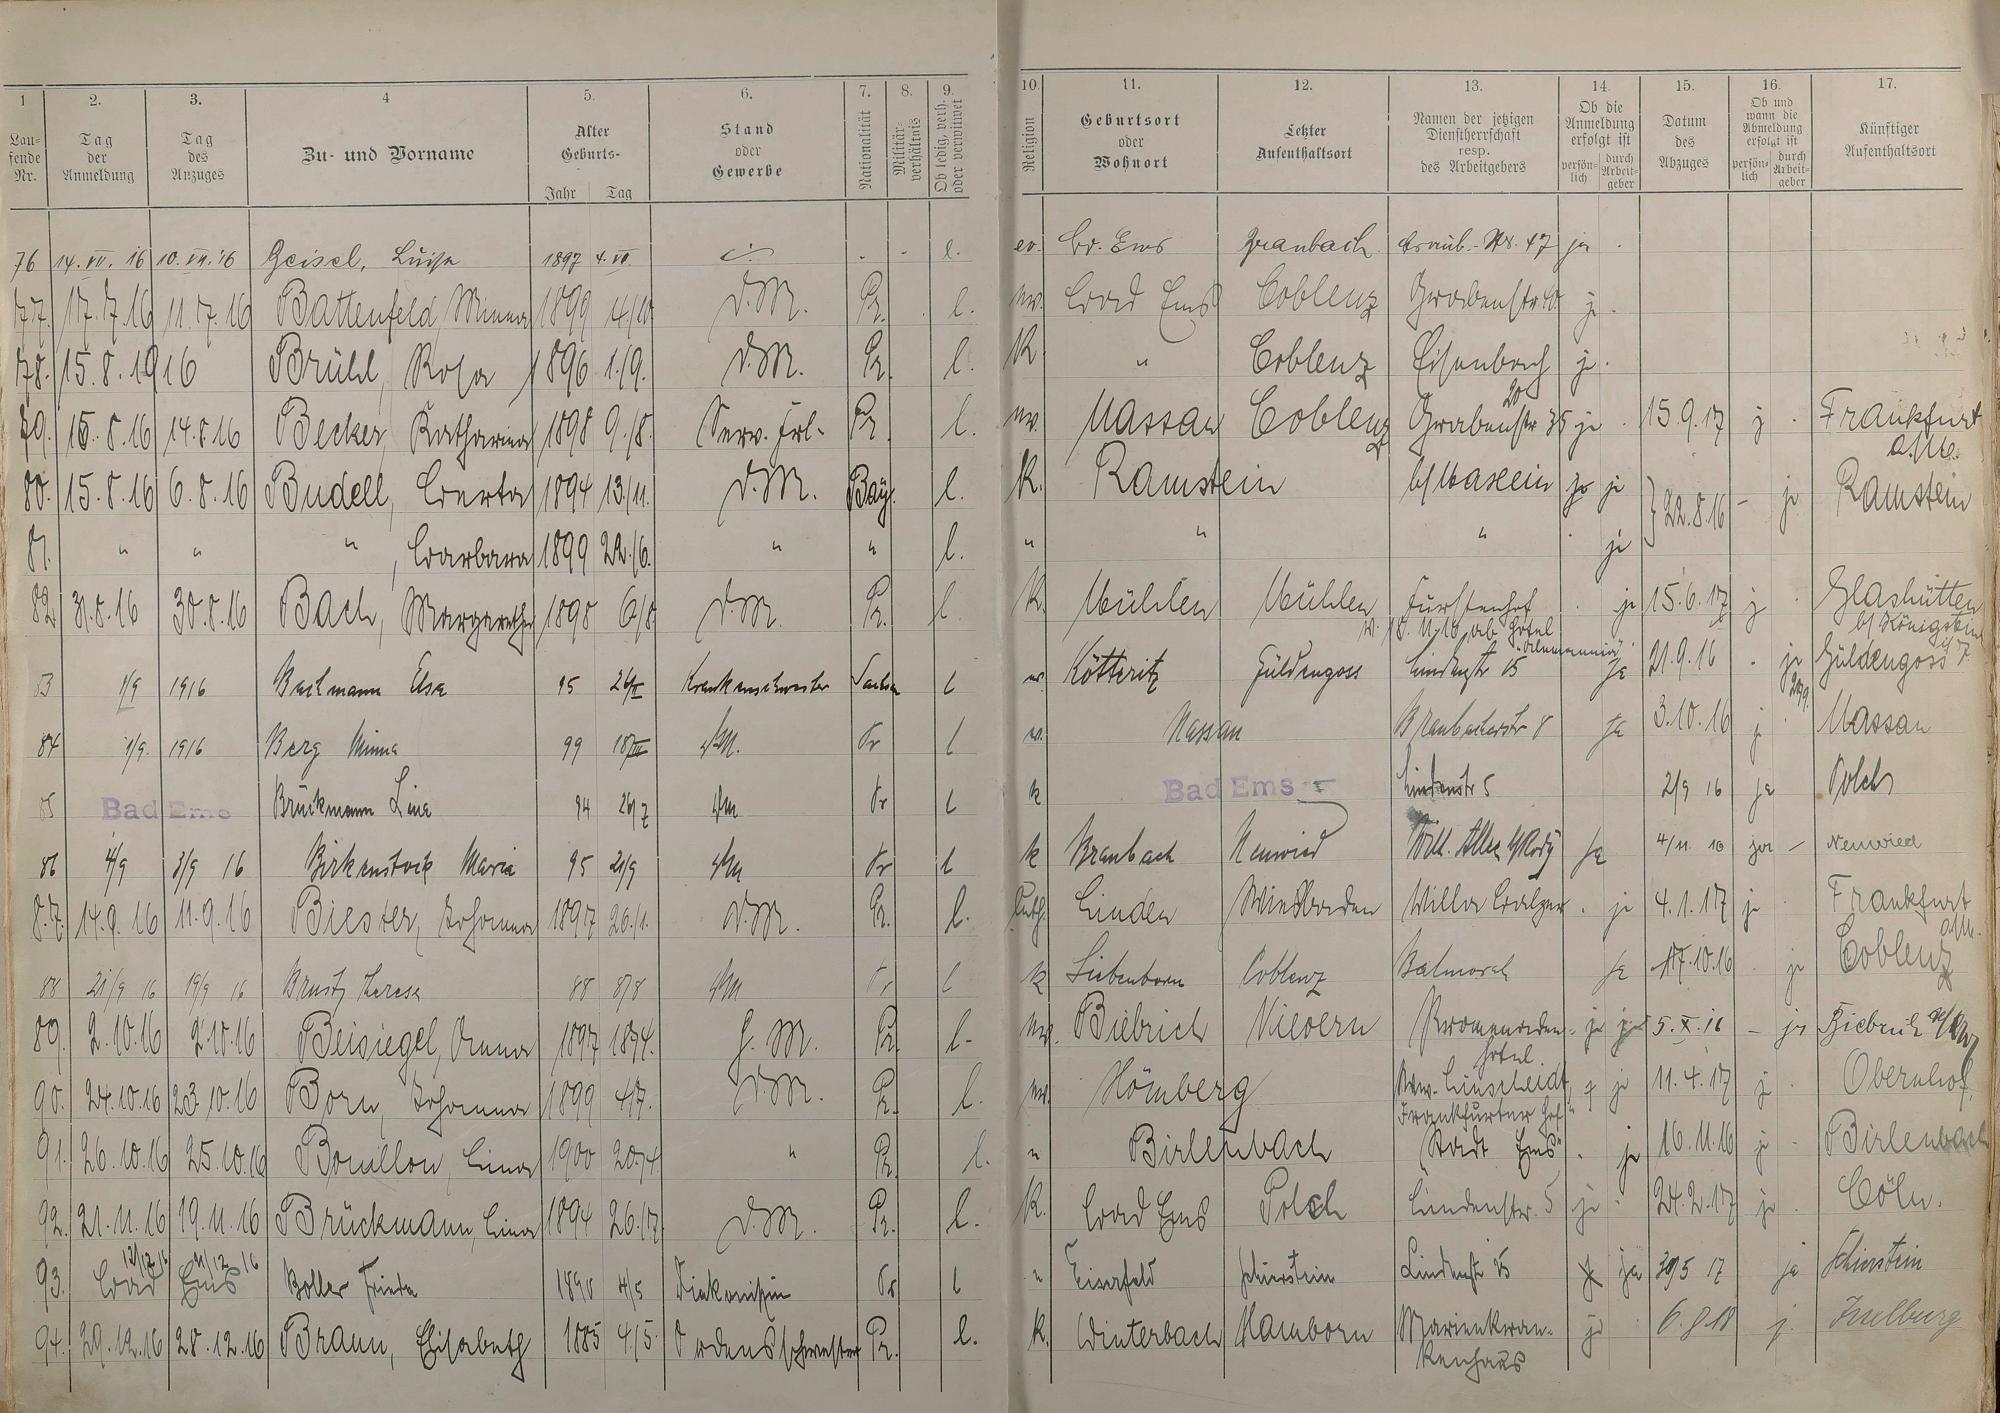 1 2. 3. 4 5. 6. 7. 8. 9. 10. 11. 12. 13. 14. 15. 16. 17.
Lau-
fende
Nr.
Tag
der
Anmeldung
Tag
des
Anzuges
Zu- und Vorname
Alter
Geburts-
Jahr Tag
Stand
oder
Gewerbe
Nationalität
Militär-
verhältnis
Ob ledig, verh.
oder verwitwet
Religion
Geburtsort
oder
Wohnort
Letzter
Aufenthaltsort
Namen der jetzigen
Dienstherrschaft
resp.
des Arbeitgebers
Ob die
Anmeldung
erfolgt ist
persön-
lich
durch
Arbeit-
geber
Datum
des
Abzuges
Ob und
wann die
Abmeldung
erfolgt ist
persön-
lich
durch
Arbeit-
geber
Künftiger
Aufenthaltsort
76 14. VII. 16 10. VII. 16 Geisel, Luise 1897 4. VII. l. ev. B. Ems Braubach Braub.-Str. 47 ja
77. 17.7.16 11.7.16 Battenfeld, Minna 1899 4./10 D.M. Pr. l. ev. Bad Ems Coblenz Grabenstr. j.
78. 15.8.1916 Brühl, Rosa 1896 1./9. D.M. Pr. l. K " Coblenz Eisenbach j.
79. 15.8.16 14.8.16 Becker, Katharina 1898 9./8. Serv. Frl. Pr. l. ev. Nassau Coblenz Grabenstr. 35 ja 15.9.17 j. Frankfurt
a./M.
80. 15.8.16 6.8.16 Budell, Berta 1894 13./11. D.M. Bay. l. K. Ramstein ja 22.8.16 - ja Ramstein
81. " " " , Barbara 1899 22./6. " " l. " " " ja
82. 31.8.16 30.8.16 Bach, Margarethe 1898 6/8 D.M. Pr. l K. Mühlen Mühlen Fürstenhof ja 15.6.17 j. Glashütten
b/ Königstein
83 1/9 1916 Bachmann Elsa 95 Krankenschwester Sachsen l ev. Kötteritz Güldengoss Lindenstr 15 ja 21.9.16 ja Güldengoss
84 1/9. 1916 Berg Minna 99 18/III D.M. Pr l ev. Nassau Braubacherstr 8 ja 3.10.16 j. Nassau
85 Bad Ems Brückmann Lina 94 26/7 DM Pr l k Bad Ems Lindenstr 5 2/9 16 ja Polch
86 4/9 3/9 16 Birkenstock Maria 95 21/9 DM Pr l k Braubach Neuwied ja 4/11 16 ja - Neuwied
87. 14.9.16 11.9.16 Biester, Johanna 1897 26./1. D.M. Pr. l. Luth. Linden Wiesbaden Villa Balzer ja 4.1.17 j. Frankfurt
a/M.
88 21/9 16 19/9 16 Theresa 88 8/8 DM Pr l k Siebenborn Coblenz Balmoral ja 17.10.16 ja Coblenz
89. 2.10.16 2.10.16 Beisiegel, Anna 1897 18/4. H.M. Pr. l. ev. Biebrich Nievern Promenaden- ja 5.X.16 - ja Biebrich
Hotel
90. 24.10.16 23.10.16 Born, Johanna 1899 4/7. D.M. Pr. l. ev. Hömberg Linscheidt ja 11.4.17 j. Obernhof
"Frankfurter Hof"
91. 26.10.16 25.10.16 Bouillon, Lina 1900 20./4 " Pr. l. " Birlenbach "Stadt Ems" ja 16.11.16 j. Birlenbach
92. 21.11.16 19.11.16 Brückmann, Lina 1894 26./7 D.M. Pr. l. K. Bad Ems Polch Lindenstr. 5 ja 24.2.17 ja Cöln.
12/12 16 11/12 16
93. Bad Ems Boller Frieda 1890 4/5 Diakonissin Pr l " Eiserfeld Schierstein Lindenstr 15 ja 30/5 17 ja Schierstein
94. 29.12.16 28.12.16 Braun, Elisabeth 1885 4/5. Ordensschwester Pr. l. K. Winterbach Hamborn Marienkran-
kenhaus ja 6.8.18 j. Isselburg